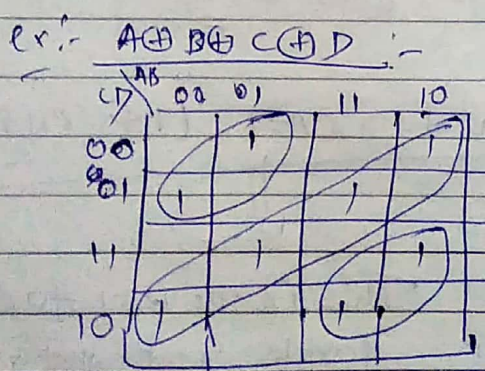 ex:- A⊕B⊕C⊕D :-
AB
CD 00 01 11 10
00 1 1
01 1 1
11 1 1
10 1 1